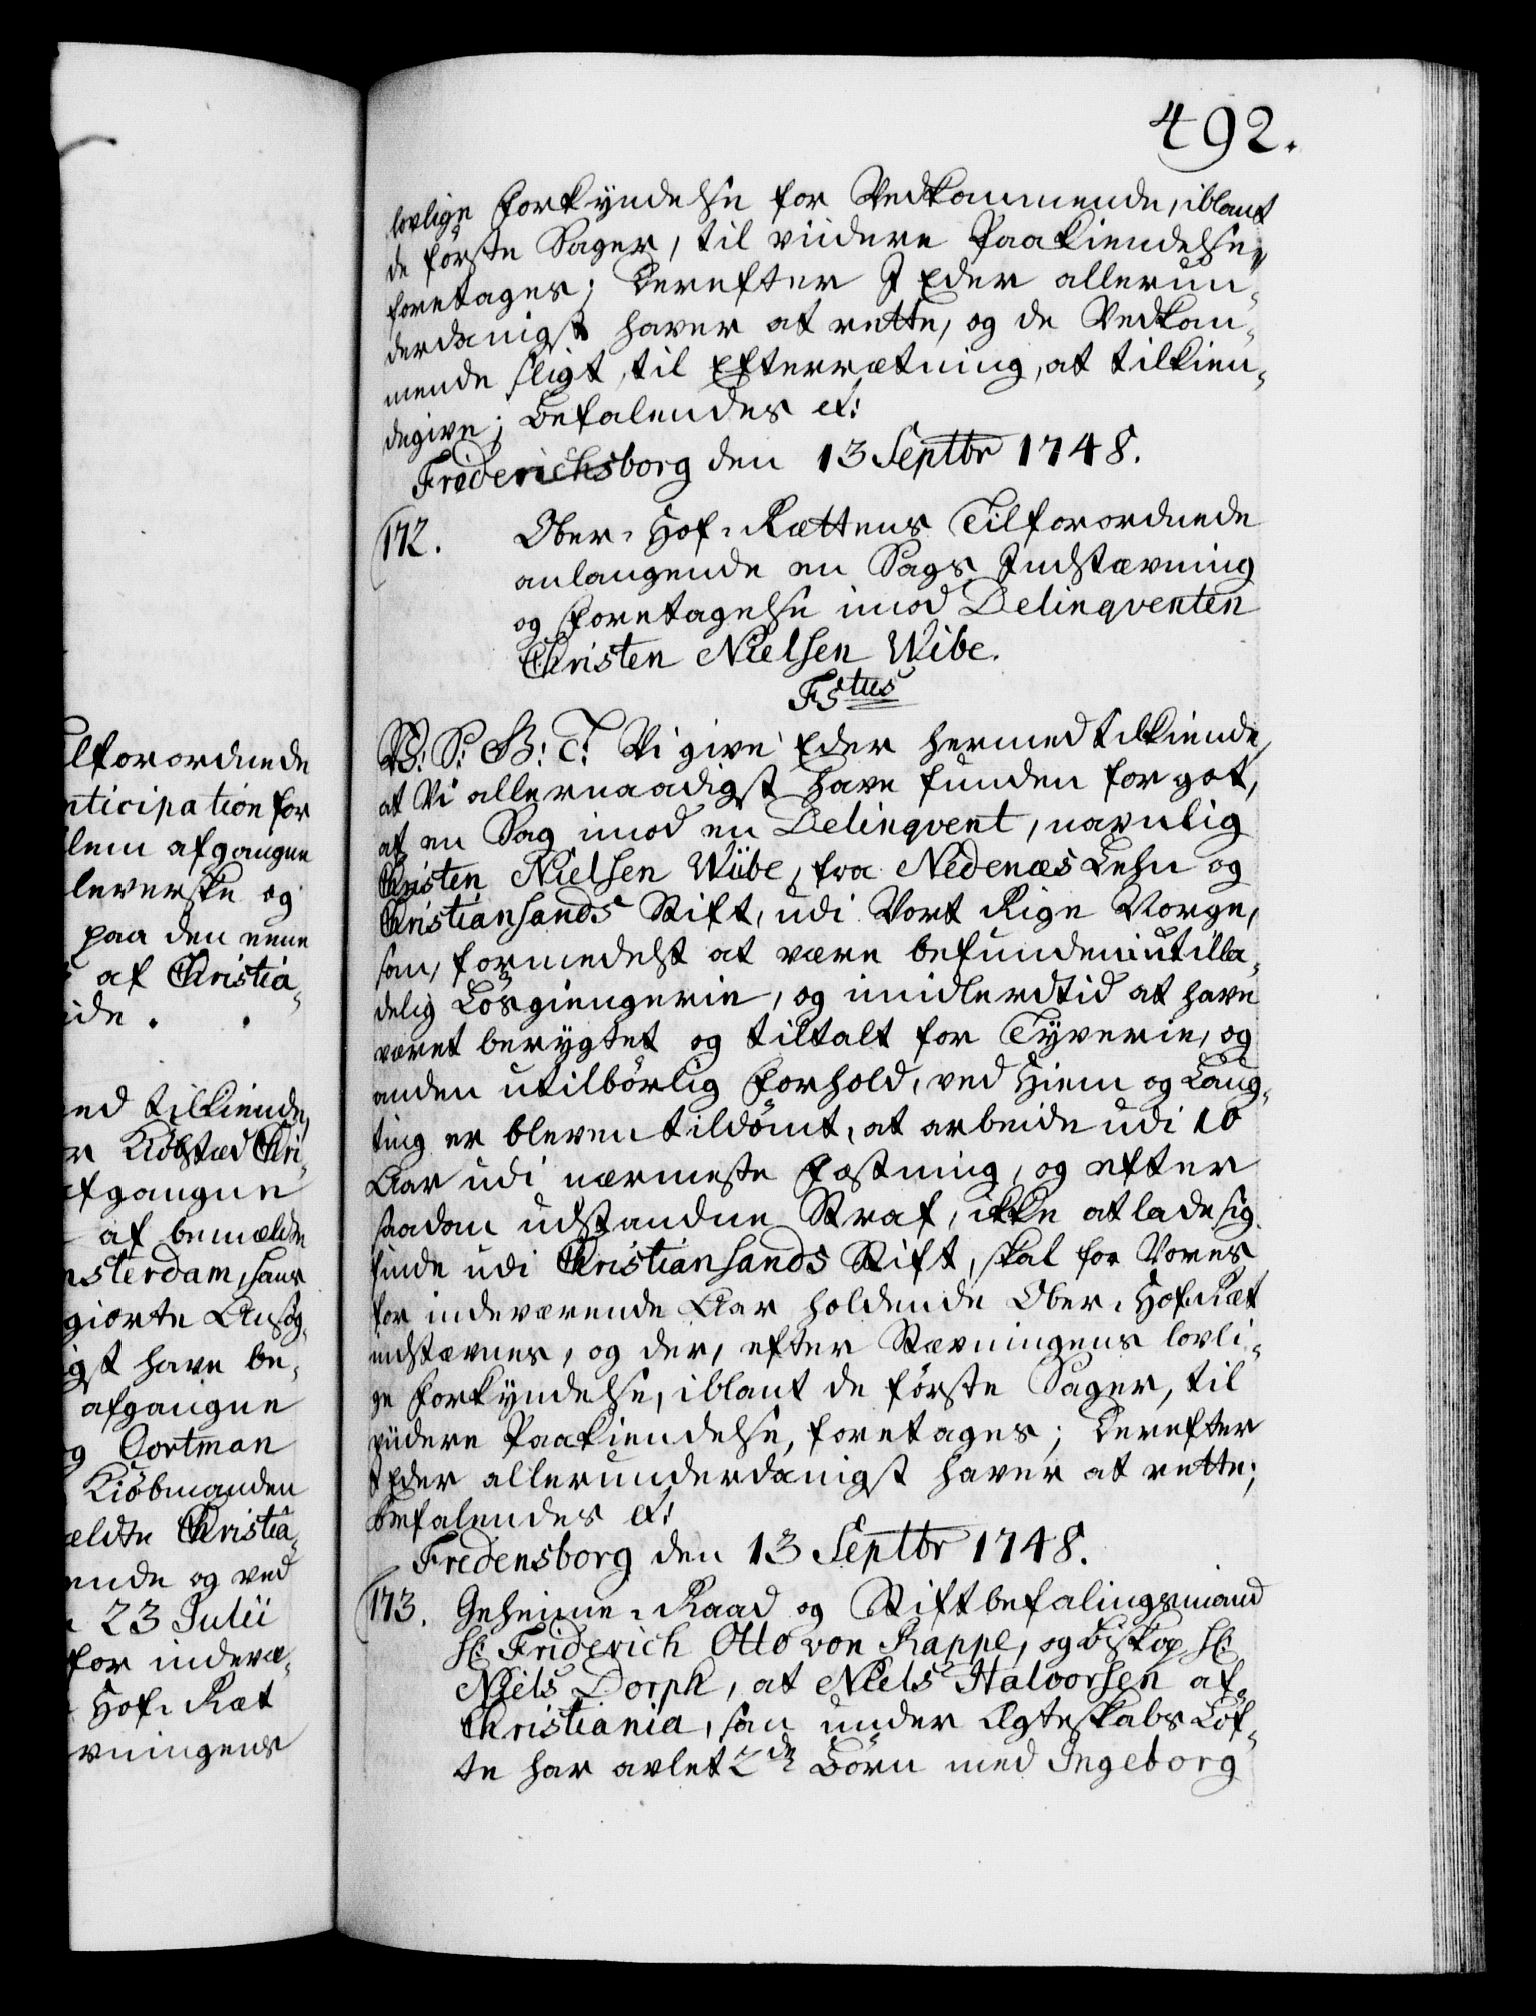 492.
lovlige Forkyndelse for Vedkommende, iblant
de förste Sager, til viidere Paakiendelse,
foretages; Derefter I Eder allerun-
derdanigst haver at rette, og de Vedkom-
mende sligt, til Efterretning, at tilkien-
degive; Befalendes etc:
Friderichsborg den 13 Septbr 1748.
172. Ober-Hof-Rettens Tilforordnede
anlangende en Sags Indstævning
og Foretagelse imod Delinqventen
Christen Nielsen Wibe.
F5tus
V: S: G: T: Vi give Eder hermed tilkiende,
at Vi allernaadigst have funden for got,
at en Sag imod en Delinqvent, navnlig
Christen Nielsen Wiibe, fra Nedenæs Lehn og
Christiansands Stift, udi Vort Rige Norge,
som, formedelst at være befunden i utilla-
delig Lösgiengerie, og imidlertid at have
været berygtet og tiltalt for Tyverie, og
anden utilbörlig Forhold, ved Hiem og Laug-
ting er bleven tildömt, at arbeide udi 10
Aar udi nærmeste Fæstning, og efter
saadan udstandne Straf, ikke at lade sig
finde udi Christiansands Stift, skal for Vores
for indeværende Aar holdende Ober-Hof-Ræt
indstævnes, og der, efter Stævningens lovli-
ge Forkyndelse, iblant de förste Sager, til
viidere Paakiendelse, foretages; Derefter
I Eder allerunderdanigst haver at rette;
Befalendes etc:
Fredensborg den 13 Septbr 1748.
173. Geheime-Raad og Stiftbefalingsmand
Hr: Friderich Otto von Rappe, og Biskop Hr:
Niels Dorph, at Niels Halvorsen af
Christiania, som under Ægteskabs Löf-
te har avlet 2de Börn med Ingeborg
lforordnede
nticipation for
lem afgangne
leverske og
paa den eene
af Christia-
ide.
ed tilkiende,
r Kiöbstæd Chri-
afgangne
af bemældte
nsterdam, hans
giorte Ansög-
igst have be-
afgangne
og Cortman
Kiöbmanden
ældte Christia-
ende og ved
23 Julii
for indevæ-
Hof-Ræt
vningens